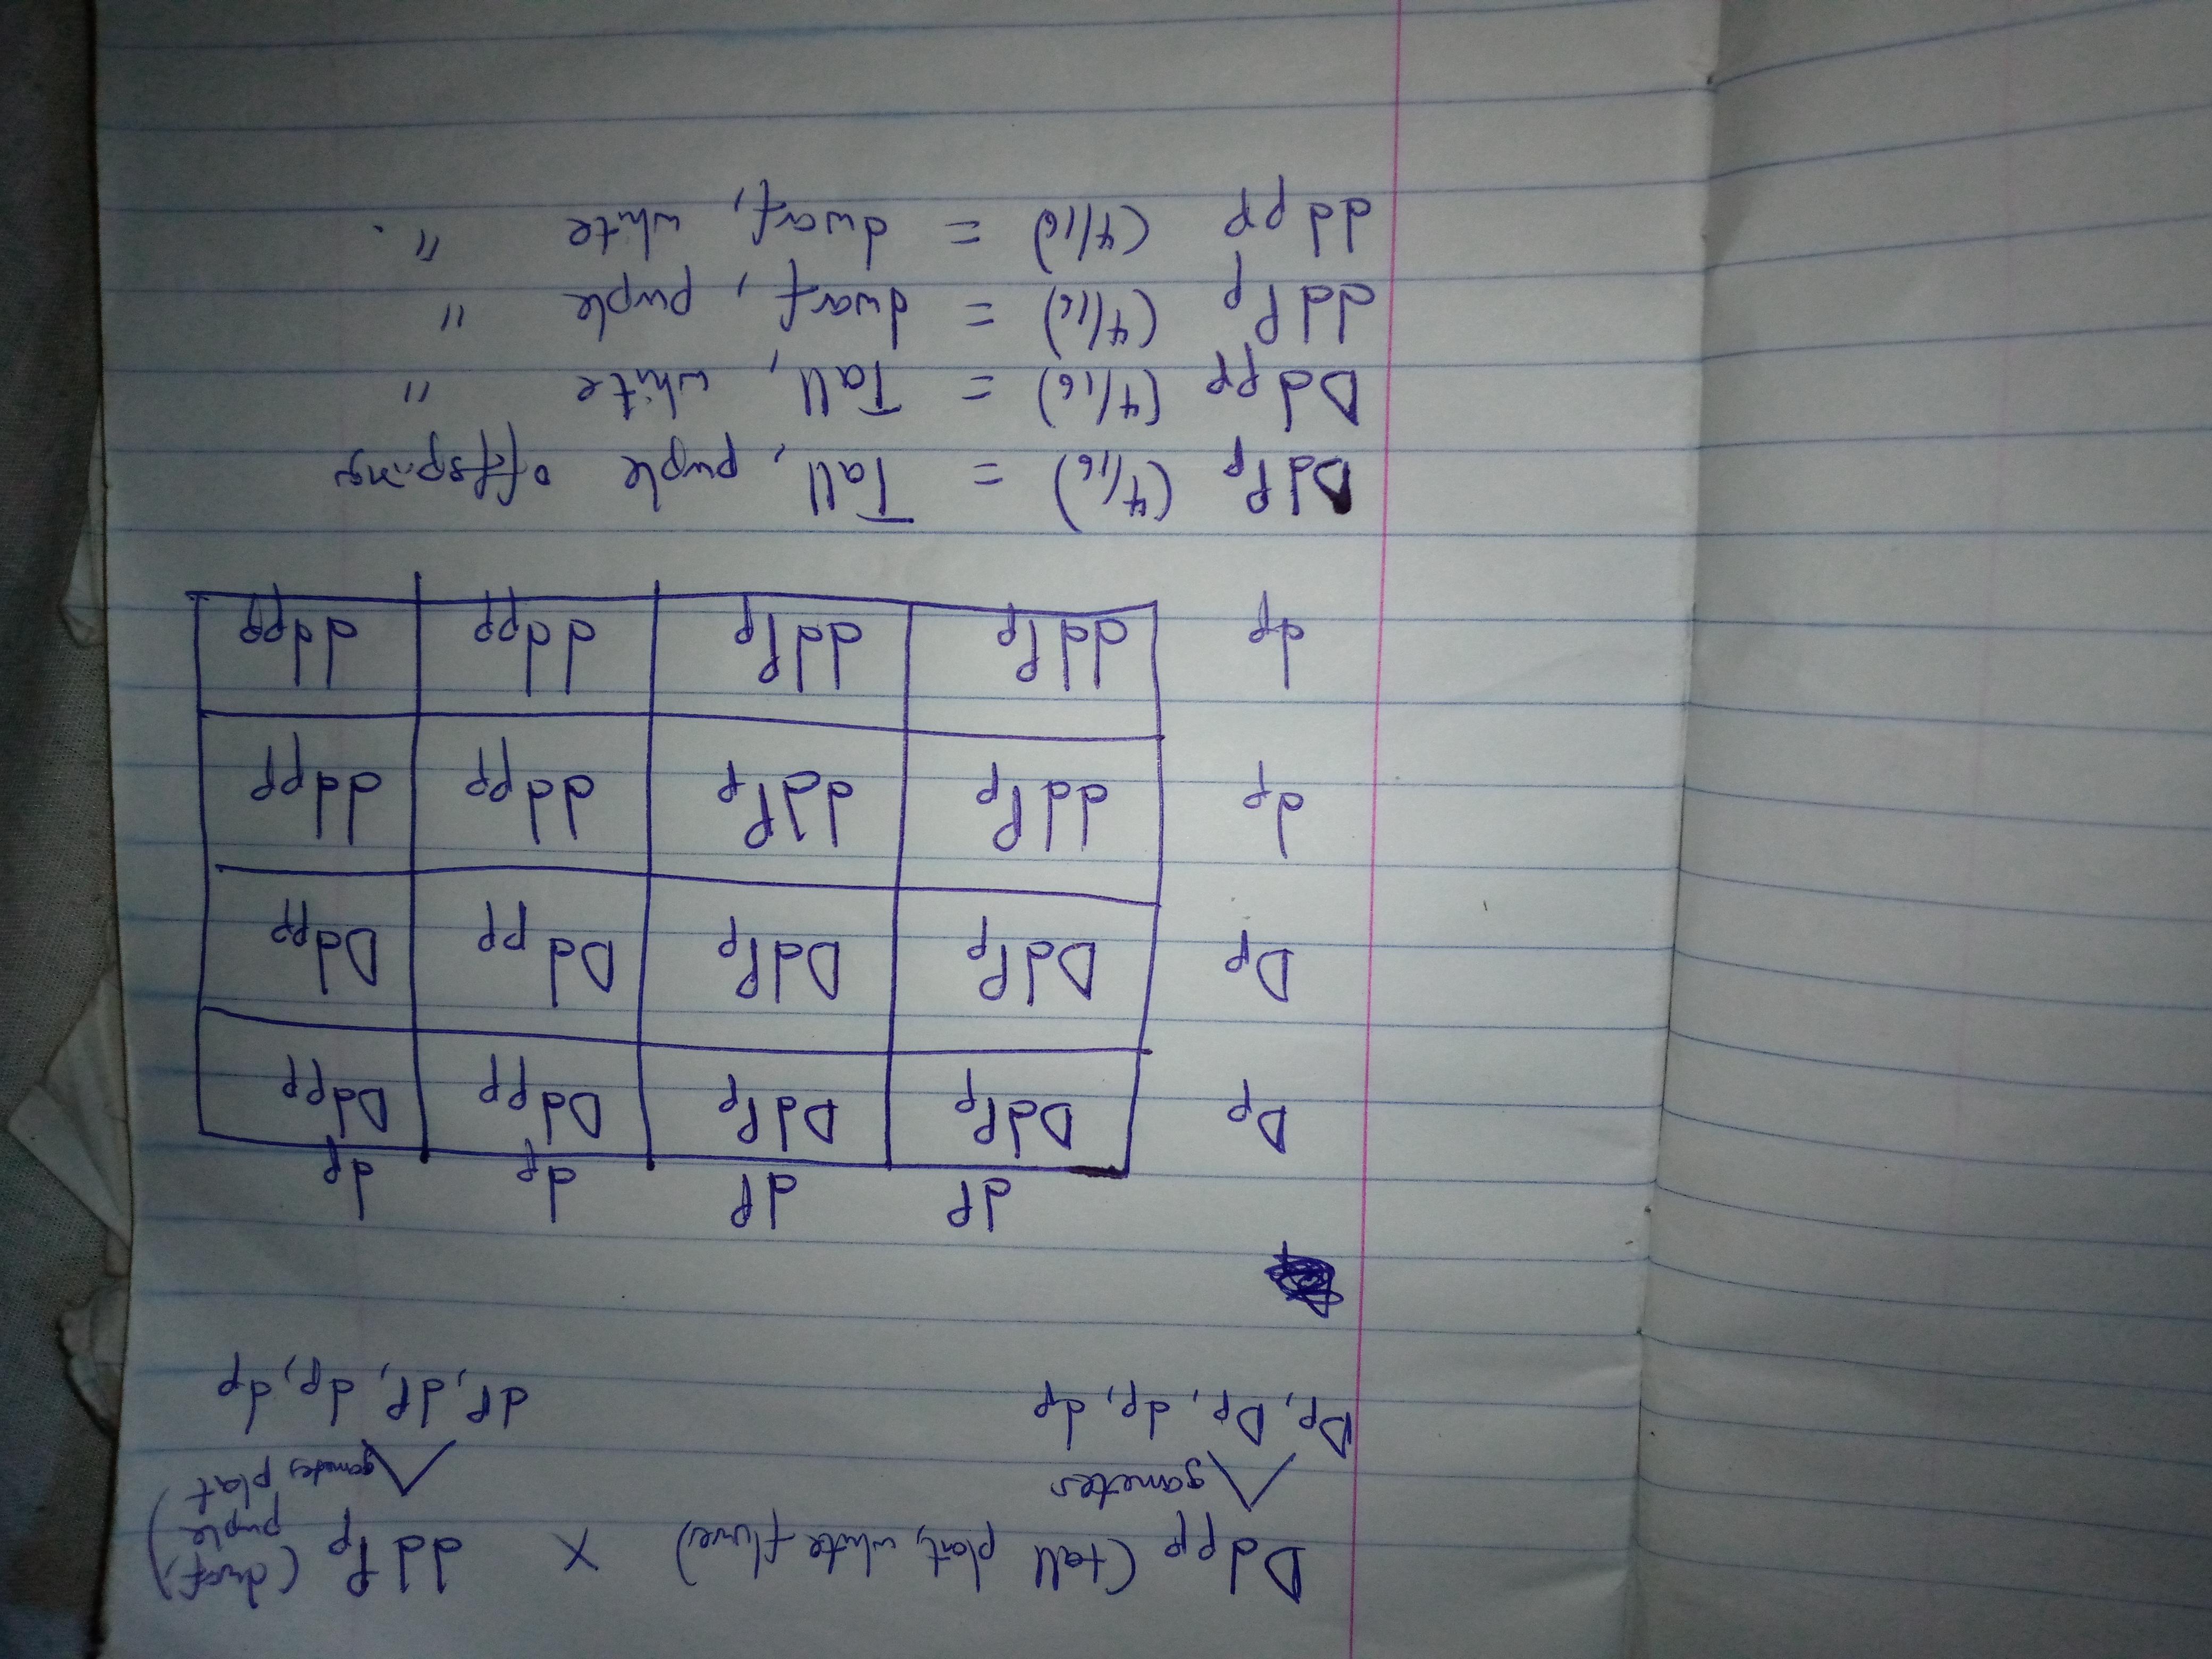 Ddpp (tall plat, white flwer) X ddPp (dwarf, puple plat)
gametes gametes
Dp, Dp, dp, dp dP, dP, dp, dp
dP dP dp dp
Dp DdPp DdPp Ddpp Ddpp
Dp DdPp DdPp Ddpp Ddpp
dp ddPp ddPp ddpp ddpp
dp ddPp ddPp ddpp ddpp
DdPp (4/16) = Tall, puple offspring
Ddpp (4/16) = Tall, white "
ddPp (4/16) = dwarf, puple "
ddpp (4/16) = dwarf, white ".